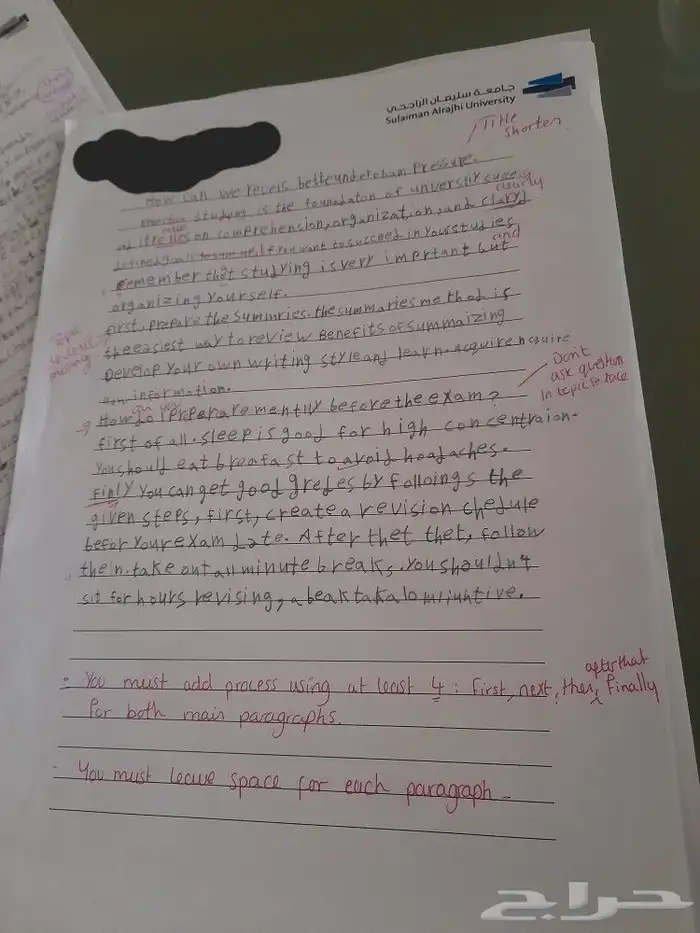 جامعة سليمان الراجحي
Sulaiman Alrajhi University
Title
shorten
How can we reveis bette under exam Pressure.
studying is the foundaton of universtiy success
clearly
it relies on comprehension, organization, and
if you want to succeed in your studies
and
Remember that studying is very important but
organizing yourself.
first, prepare the Summries. the summaries method is
the easiest way to review Benefits of summaizing
Topic
sentence
missing
Develop your own writing style and learn. acquire
information.
Don't
ask question
in topic sentence
How do I prepare mentlly before the exam?
first of all. sleep is good for high concentraion.
You should eat breafast to avoid headaches.
Finly You can get good gredes by folloings the
given steps, first, create a revision chedule
befor your exam date. After thet thet, follow
then. take out all minute breaks. You shouldn't
sit for hours revising, a beak
- You must add process using at least 4 : first, next, then, finally
after that
for both main paragraphs.
- You must leave space for each paragraph -
حراج